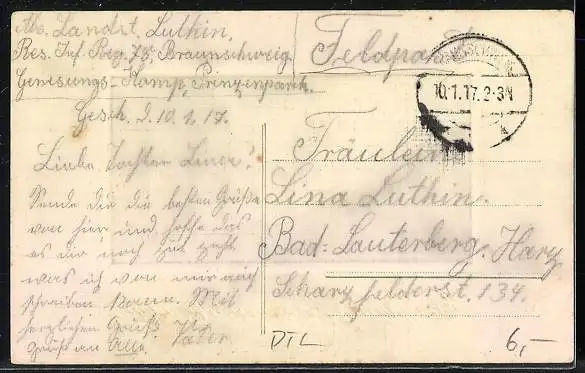 Abs. Landst. Luthin,
Res. Inf. Reg. 78, Braunschweig
Genesungs-Komp, Prinzenpark.
Gesch. d. 10.1.17.
Liebe Tochter Lina!
Sende dir die besten Grüße
von hier und hoffe das
es dir noch gut geht
was ich von mir auch
schreiben kann. Mit
herzlichen Gruß Vater
Gruß an Alle.
Feldpost
10.1.17.2-3N
Fräulein
Lina Luthin.
Bad-Lauterberg. Harz
Scharzfelderst. 134.
DTL
6,-